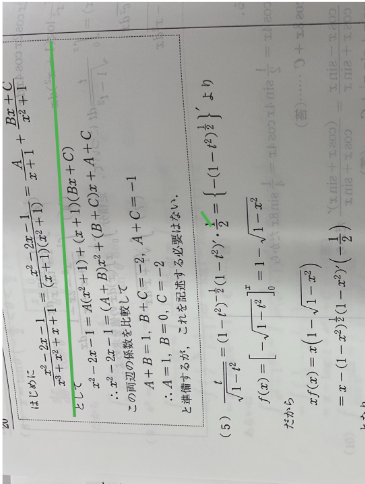 はじめに
\frac{x^2-2x-1}{x^3+x^2+x+1} = \frac{x^2-2x-1}{(x+1)(x^2+1)} = \frac{A}{x+1} + \frac{Bx+C}{x^2+1}
として
x^2-2x-1=A(x^2-1)+(x+1)(Bx+C)
∴x^2-2x-1=(A+B)x^2+(B+C)x+A+C
この両辺の係数を比較して
A+B=1, B+C=-2, A+C=-1
∴A=1, B=0, C=-2
と準備するが，これを記述する必要はない．
(5) \frac{t}{\sqrt{1-t^2}} = (1-t^2)^{-\frac{1}{2}}(1-t^2)'・\frac{1}{2} = \left\{-(1-t^2)^{\frac{1}{2}}\right\}' より
f(x)=\left[-\sqrt{1-t^2}\right]_0^x=1-\sqrt{1-x^2}
だから
xf(x)=x\left(1-\sqrt{1-x^2}\right)
=x-(1-x^2)^{\frac{1}{2}}(1-x^2)'\left(-\frac{1}{2}\right)